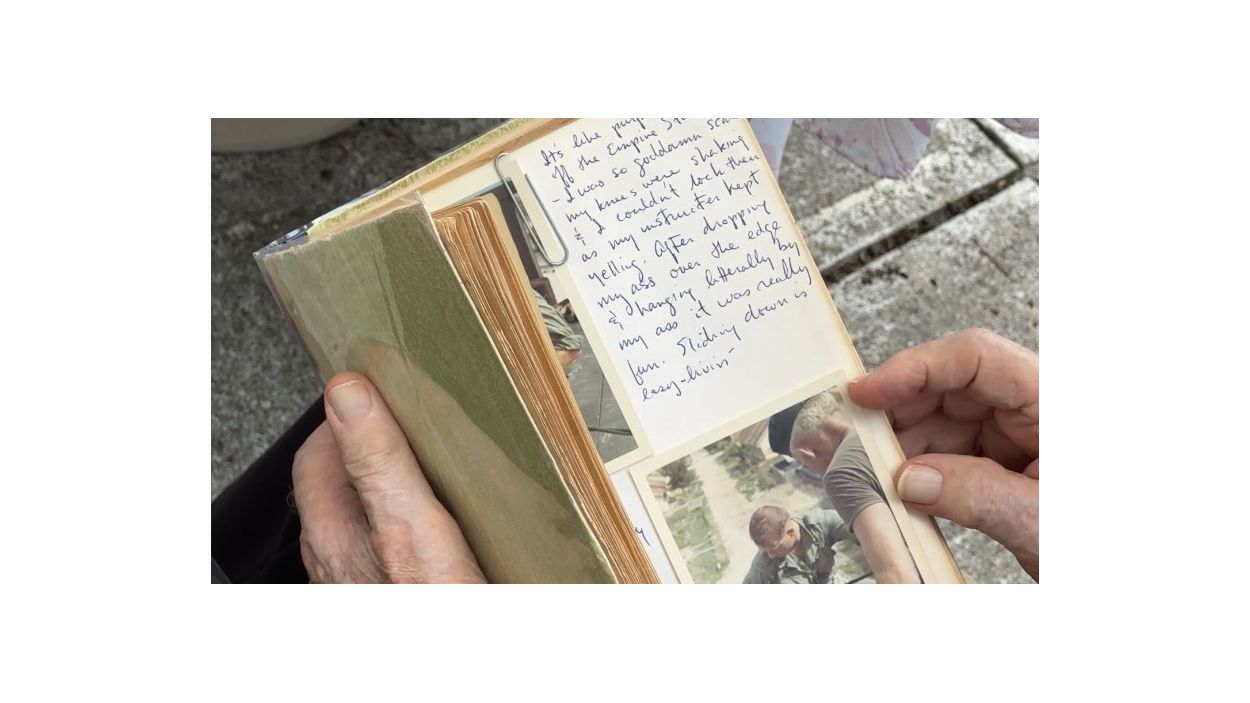 It's like
off the Empire
- I was so goddamn
my knees were shaking
& I couldn't lock them
as my instructer kept
yelling. After dropping
my ass over the edge
& hanging litterally by
my ass it was really
fun. Sliding down is
easy-livin-